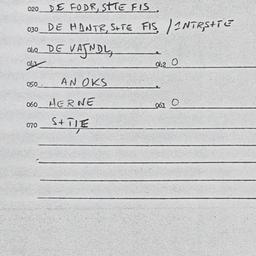 020 DE FODR, STTE FIS.
030 DE HANTR, S+TE FIS, / INTRS+TE
040 DE VAJNDL,
041 042 O
050 AN OKS
060 HERNE 061 O
070 S+TIE